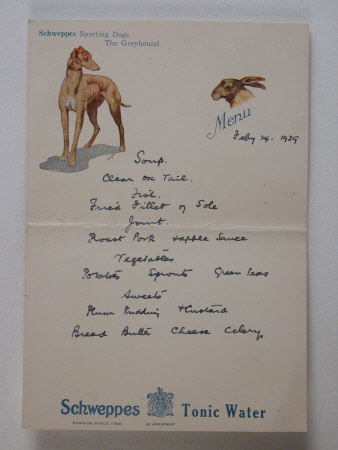 Schweppes Sporting Dogs
The Greyhound.
Menu
Feby 24. 1939
Soup.
Clear ox Tail.
Fish.
Fried Fillet of Sole
Joint
Roast Pork & apple Sauce
Vegetables
Potatoes Sprouts Green Peas
Sweets
Plum Pudding & Custard
Bread Butter Cheese Celery
Schweppes Tonic Water
FAMOUS SINCE 1790 BY APPOINTMENT